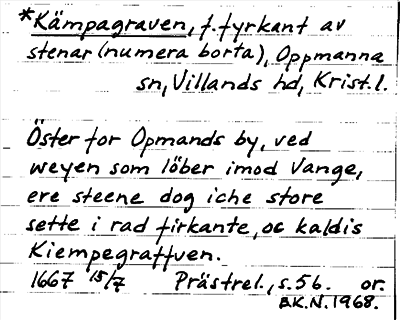 *Kämpagraven, f. fyrkant av
stenar (numera borta), Oppmanna
sn, Villands hd, Krist. l.
Öster for Opmands by, ved
weyen som löber imod Vange,
ere steene dog iche store
sette i rad firkante, oc kaldis
Kiempegraffven.
1667 15/7 Prästrel., s. 56. or.
B.K.N. 1968.